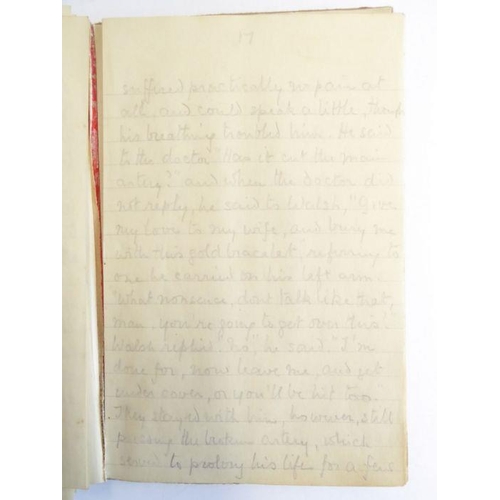 17
suffered practically no pain at
all, and could speak a little, though
his breathing troubled him. He said
to the doctor "Has it cut the main
artery?" and when the doctor did
not reply, he said to Walsh, "Give
my love to my wife, and bury me
with this gold bracelet, referring to
one he carried on his left arm.
"What nonsense, dont talk like that,
man, you're going to get over this'.
Walsh replied. "No", he said. "I'm
done for, now leave me, and get
under cover, or you'll be hit too."
They stayed with him, however, still
pressing the broken artery, which
served to prolong his life for a few